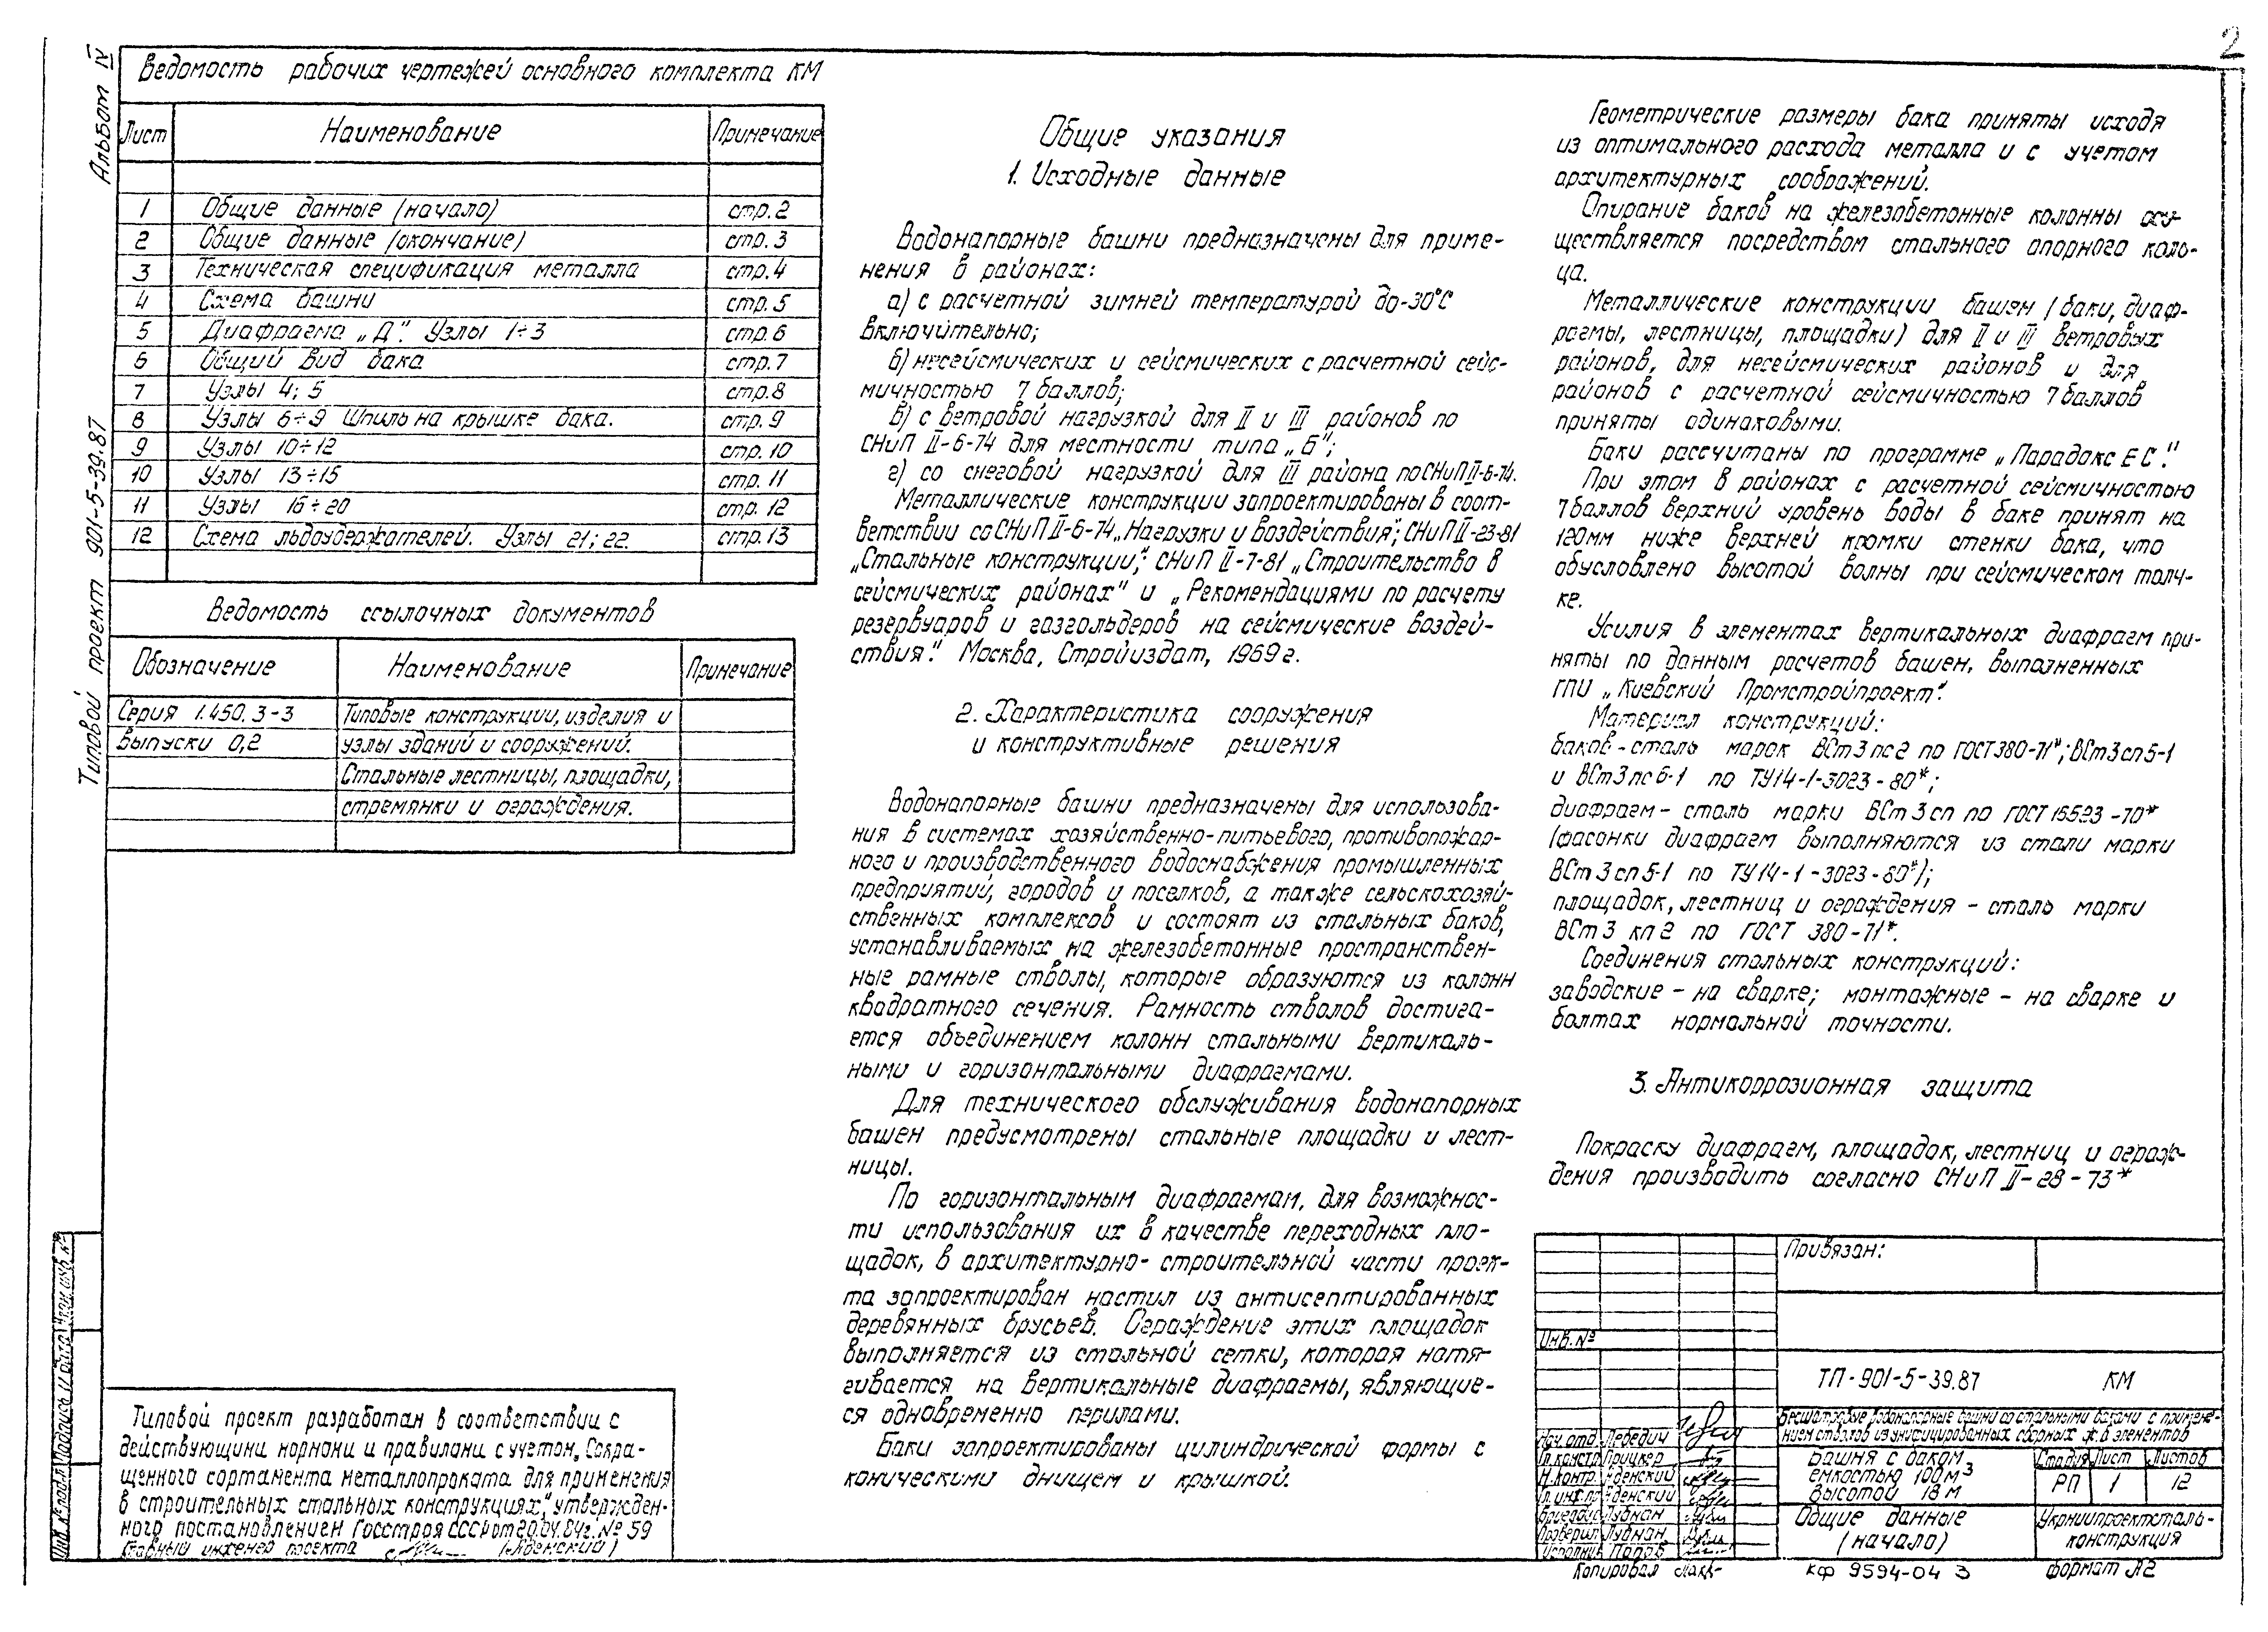 2
Альбом IV
Типовой проект 901-5-39.87
Ведомость рабочих чертежей основного комплекта КМ
Лист Наименование Примечание
1 Общие данные (начало) стр. 2
2 Общие данные (окончание) стр. 3
3 Техническая спецификация металла стр. 4
4 Схема башни стр. 5
5 Диафрагма „Д". Узлы 1÷3 стр. 6
6 Общий вид бака стр. 7
7 Узлы 4; 5 стр. 8
8 Узлы 6÷9 Шпиль на крышке бака. стр. 9
9 Узлы 10÷12 стр. 10
10 Узлы 13÷15 стр. 11
11 Узлы 16÷20 стр. 12
12 Схема льдоудержателей. Узлы 21; 22. стр. 13
Ведомость ссылочных документов
Обозначение Наименование Примечание
Серия 1.450.3-3 Типовые конструкции, изделия и
Выпуски 0,2 узлы зданий и сооружений.
Стальные лестницы, площадки,
стремянки и ограждения.
Типовой проект разработан в соответствии с
действующими нормами и правилами с учетом „Сокра-
щенного сортамента металлопроката для применения
в строительных стальных конструкциях," утвержден-
ного постановлением Госстроя СССР от 20.04.84г. № 59
Главный инженер проекта
Общие указания
1. Исходные данные
Водонапорные башни предназначены для приме-
нения в районах:
а) с расчетной зимней температурой до -30°С
включительно;
б) несейсмических и сейсмических с расчетной сейс-
мичностью 7 баллов;
в) с ветровой нагрузкой для II и III районов по
СНиП II-6-74 для местности типа „Б";
г) со снеговой нагрузкой для III района по СНиП II-6-74.
Металлические конструкции запроектированы в соот-
ветствии со СНиП II-6-74 „Нагрузки и воздействия"; СНиП II-23-81
„Стальные конструкции"; СНиП II-7-81 „Строительство в
сейсмических районах" и „Рекомендациями по расчету
резервуаров и газгольдеров на сейсмические воздей-
ствия". Москва, Стройиздат, 1969 г.
2. Характеристика сооружения
и конструктивные решения
Водонапорные башни предназначены для использова-
ния в системах хозяйственно-питьевого, противопожар-
ного и производственного водоснабжения промышленных
предприятий, городов и поселков, а также сельскохозяй-
ственных комплексов и состоят из стальных баков,
устанавливаемых на железобетонные пространствен-
ные рамные стволы, которые образуются из колонн
квадратного сечения. Рамность стволов достига-
ется объединением колонн стальными вертикаль-
ными и горизонтальными диафрагмами.
Для технического обслуживания водонапорных
башен предусмотрены стальные площадки и лест-
ницы.
По горизонтальным диафрагмам, для возможнос-
ти использования их в качестве переходных пло-
щадок, в архитектурно-строительной части проек-
та запроектирован настил из антисептированных
деревянных брусьев. Ограждение этих площадок
выполняется из стальной сетки, которая натя-
гивается на вертикальные диафрагмы, являющие-
ся одновременно перилами.
Баки запроектированы цилиндрической формы с
коническими днищем и крышкой.
Геометрические размеры бака приняты исходя
из оптимального расхода металла и с учетом
архитектурных соображений.
Опирание баков на железобетонные колонны осу-
ществляется посредством стального опорного коль-
ца.
Металлические конструкции башен (баки, диаф-
рагмы, лестницы, площадки) для II и III ветровых
районов, для несейсмических районов и для
районов с расчетной сейсмичностью 7 баллов
приняты одинаковыми.
Баки рассчитаны по программе „Парадокс ЕС".
При этом в районах с расчетной сейсмичностью
7 баллов верхний уровень воды в баке принят на
120мм ниже верхней кромки стенки бака, что
обусловлено высотой волны при сейсмическом толч-
ке.
Усилия в элементах вертикальных диафрагм при-
няты по данным расчетов башен, выполненных
ГПИ „Киевский Промстройпроект".
Материал конструкций:
баков - сталь марок ВСт3пс2 по ГОСТ 380-71*; ВСт3сп5-1
и ВСт3пс6-1 по ТУ14-1-3023-80*;
диафрагм - сталь марки ВСт3сп по ГОСТ 16523-70*
(фасонки диафрагм выполняются из стали марки
ВСт3сп5-1 по ТУ14-1-3023-80*);
площадок, лестниц и ограждения - сталь марки
ВСт3кп2 по ГОСТ 380-71*.
Соединения стальных конструкций:
заводские - на сварке; монтажные - на сварке и
болтах нормальной точности.
3. Антикоррозионная защита
Покраску диафрагм, площадок, лестниц и ограж-
дения производить согласно СНиП II-28-73*
Привязан:
Инв. №
ТП-901-5-39.87 КМ
Бесшатровые водонапорные башни со стальными баками с примене-
нием стволов из унифицированных сборных ж.б элементов
Нач. отд. Лебедич
Гл. констр. Прицкер
Н. контр.
Гл. инж. пр.
Проверил Лубнан
Исполнил Попов
Башня с баком
емкостью 100 м³
высотой 18 м
Стадия Лист Листов
РП 1 12
Общие данные
(начало)
Укрниипроектсталь-
конструкция
Инв. № подл. Подпись и дата Взам. инв. №
Копировал
КФ 9594-04 3
формат А2